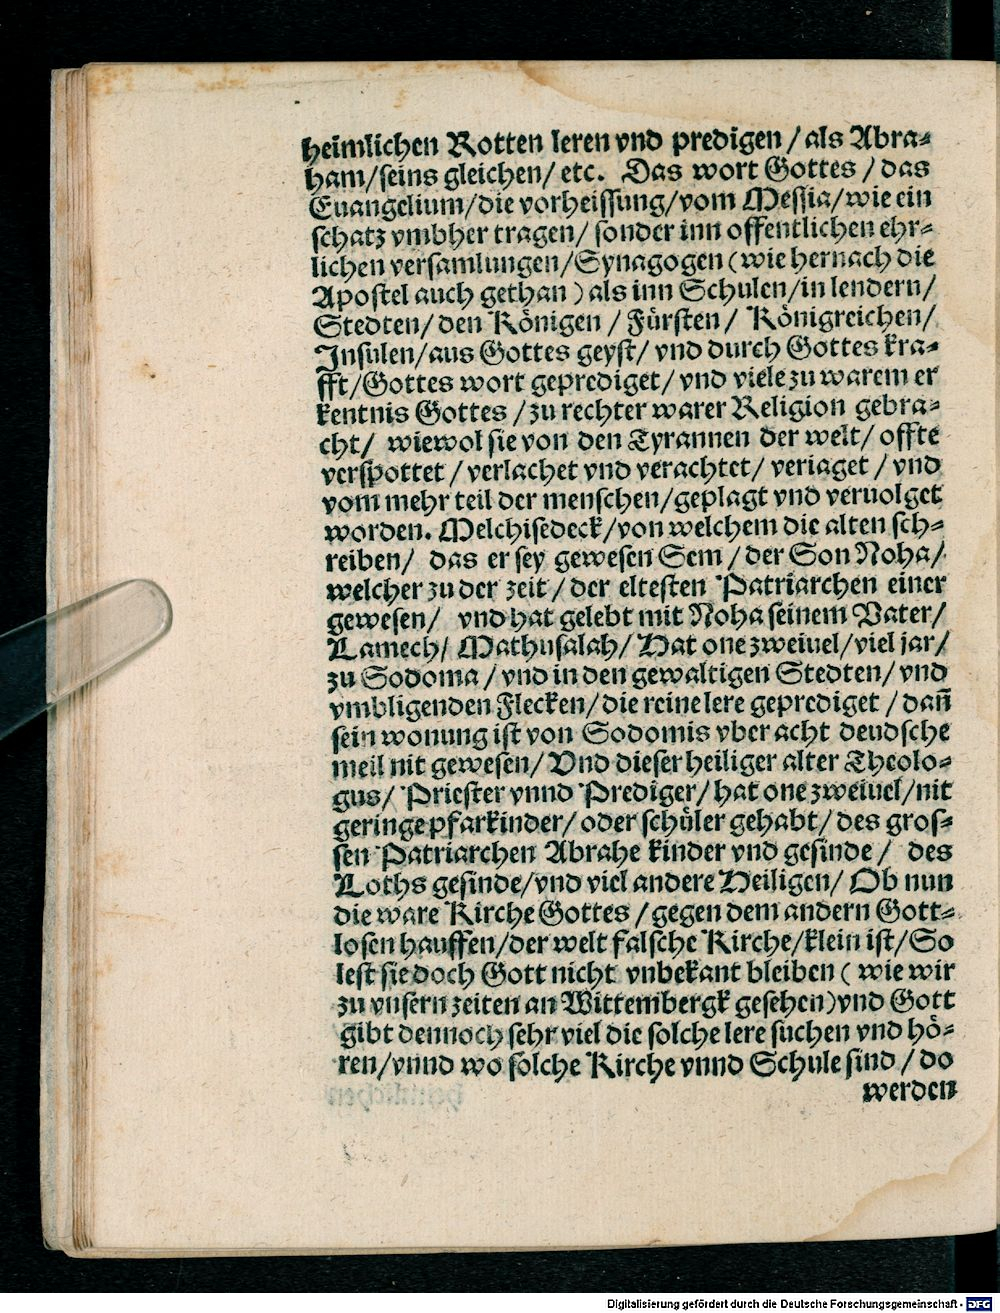 heimlichen Rotten leren vnd predigen / als Abra⸗
ham/seins gleichen/ etc. Das wort Gottes / das
Euangelium/die vorheissung/vom Messia/wie ein
schatz vmbher tragen/ sonder inn offentlichen ehr⸗
lichen versamlungen/Synagogen (wie hernach die
Apostel auch gethan ) als inn Schulen/in lendern/
Stedten/den Königen / Fürsten / Königreichen/
Insulen/aus Gottes geyst/ vnd durch Gottes kra⸗
fft/Gottes wort geprediget/ vnd viele zu warem er
kentnis Gottes /zu rechter warer Religion gebra⸗
cht/ wiewol sie von den Tyrannen der welt/ offte
verspottet / verlachet vnd verachtet/ veriaget / vnd
vom mehr teil der menschen/geplagt vnd veruolget
worden. Melchisedeck/von welchem die alten sch⸗
reiben/ das er sey gewesen Sem / der Son Noha/
welcher zu der zeit / der eltesten Patriarchen einer
gewesen/ vnd hat gelebt mit Noha seinem Vater/
Lamech/ Mathusalah/ Hat one zweiuel/viel jar/
zu Sodoma / vnd in den gewaltigen Stedten/ vnd
vmbligenden Flecken/die reine lere geprediget / dañ
sein wonung ist von Sodomis vber acht deudsche
meil nit gewesen/ Vnd dieser heiliger alter Theolo⸗
gus/ Priester vnnd Prediger/ hat one zweiuel/nit
geringe pfarkinder/ oder schüler gehabt/ des gros⸗
sen Patriarchen Abrahe kinder vnd gesinde / des
Loths gesinde/vnd viel andere Heiligen/ Ob nun
die ware Kirche Gottes / gegen dem andern Gott⸗
losen hauffen/der welt falsche Kirche/klein ist/So
lest sie doch Gott nicht vnbekant bleiben ( wie wir
zu vnsern zeiten an Wittembergk gesehen)vnd Gott
gibt dennoch sehr viel die solche lere suchen vnd hö⸗
ren/vnnd wo solche Kirche vnnd Schule sind / do
werden
Digitalisierung gefördert durch die Deutsche Forschungsgemeinschaft - DFG